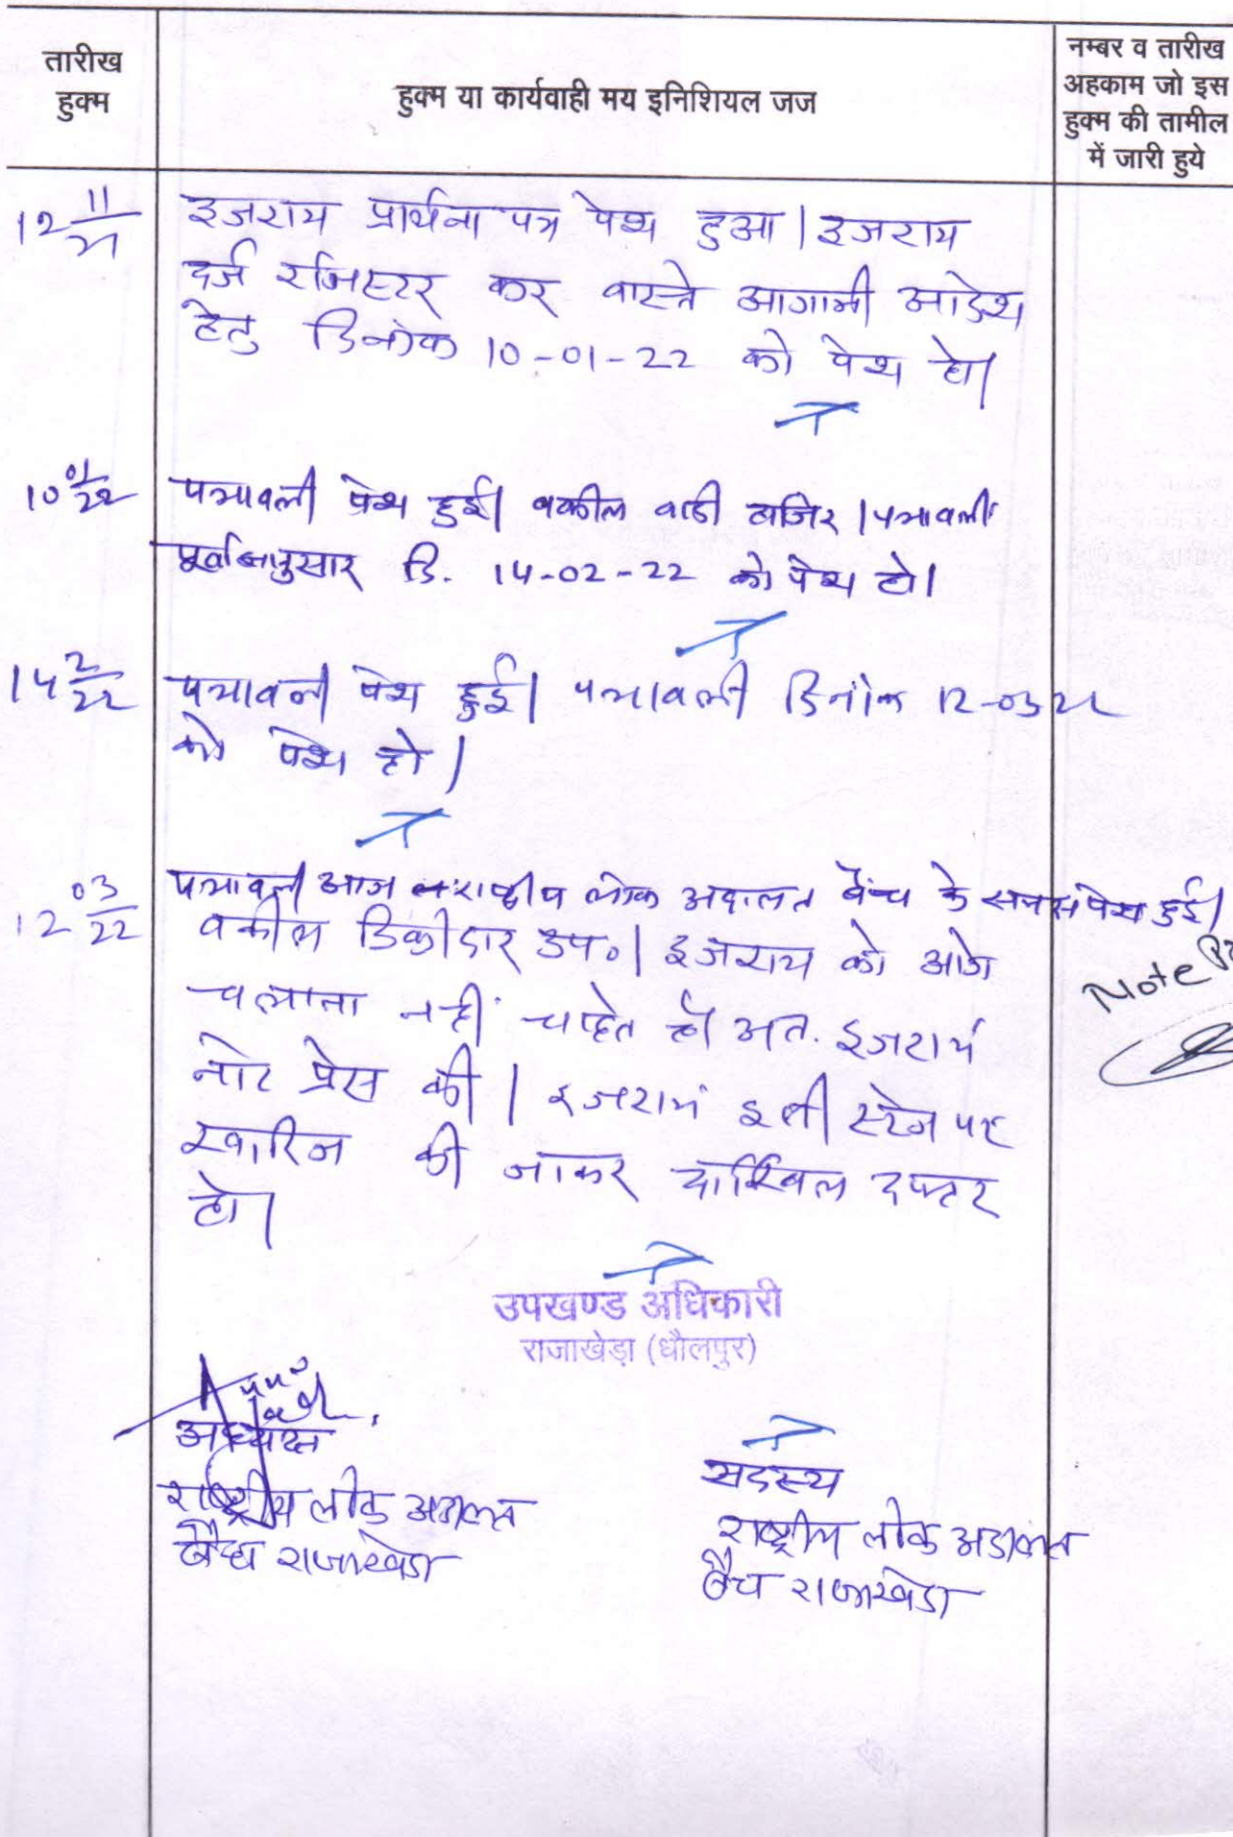 तारीख
हुक्म
हुक्म या कार्यवाही मय इनिशियल जज
नम्बर व तारीख
अहकाम जो इस
हुक्म की तामील
में जारी हुये
12 11/21 इजराय प्रार्थना पत्र पेश हुआ। इजराय
दर्ज रजिस्टर कर वास्ते आगामी आदेश
हेतु दिनांक 10-01-22 को पेश हो।
10 01/22 पत्रावली पेश हुई। वकील वादी हाजिर। पत्रावली
पूर्वानुसार दि. 14-02-22 को पेश हो।
14 2/22 पत्रावली पेश हुई। पत्रावली दिनांक 12-03-22
को पेश हो।
12 03/22 पत्रावली आज राष्ट्रीय लोक अदालत बैंच के समक्ष पेश हुई।
वकील डिक्रीदार उप०। इजराय को आगे
चलाना नहीं चाहते हैं अत. इजराय
नोट प्रेस की। इजराय इसी स्टेज पर
खारिज की जाकर दाखिल दफ्तर
हो।
Note
उपखण्ड अधिकारी
राजाखेड़ा (धौलपुर)
अध्यक्ष
राष्ट्रीय लोक अदालत
बैंच राजाखेडा
सदस्य
राष्ट्रीय लोक अदालत
बैंच राजाखेडा